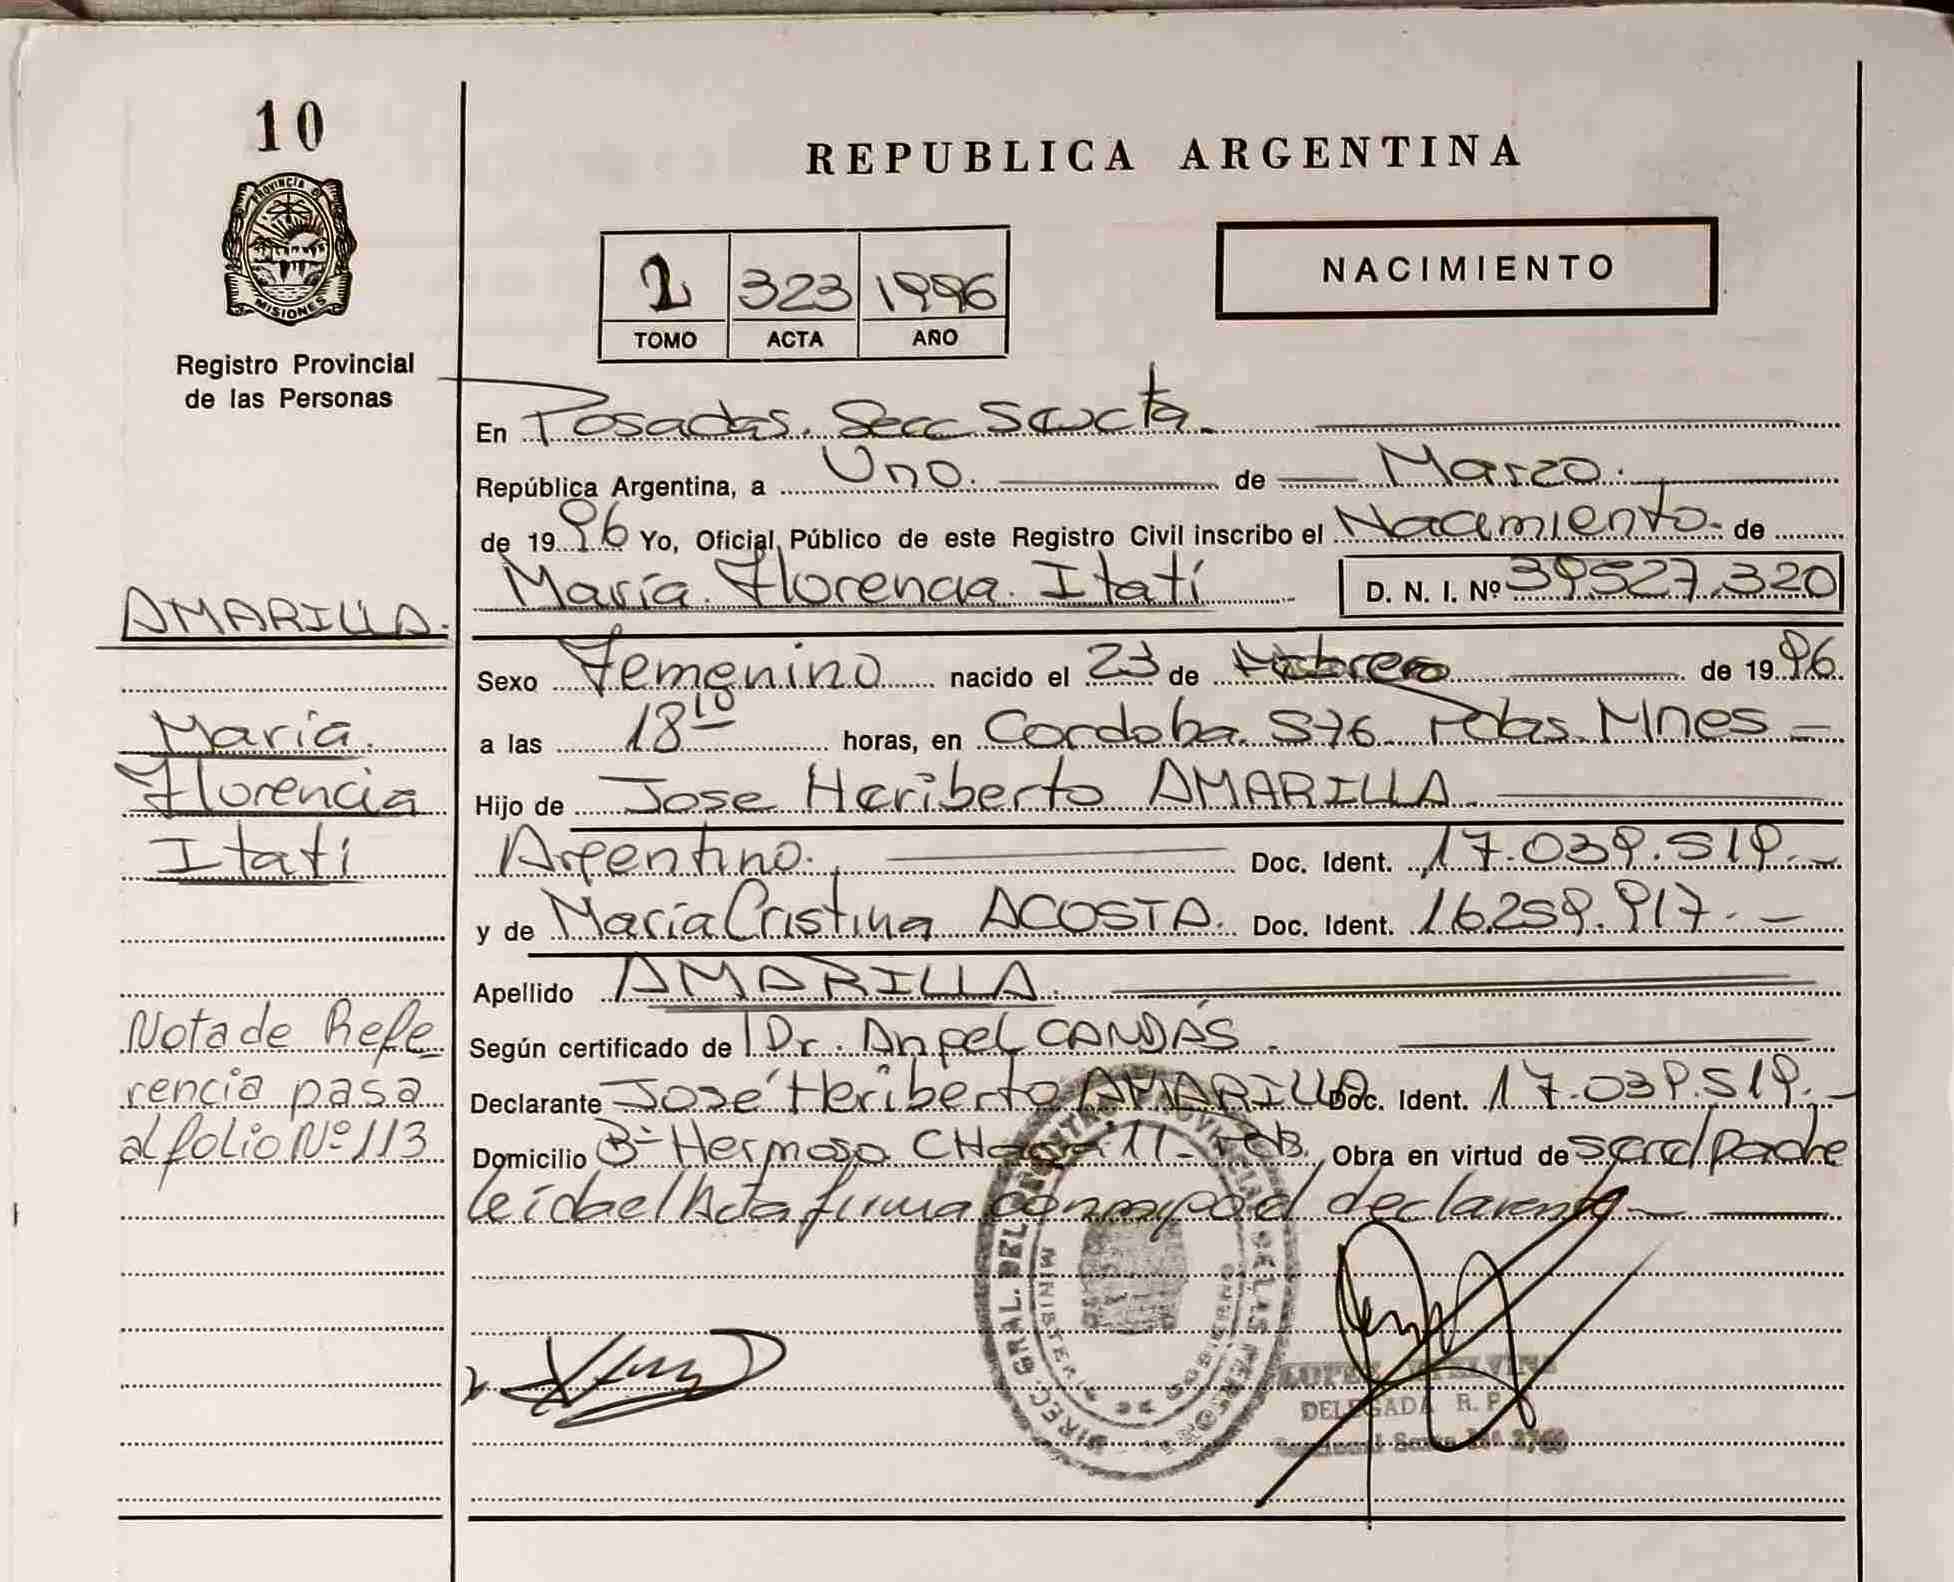 10
PROVINCIA DE
MISIONES
Registro Provincial
de las Personas
AMARILLA.
María.
Florencia
Itatí
Nota de Refe
rencia pasa
al folio Nº 113
REPUBLICA ARGENTINA
NACIMIENTO
2 323 1996
TOMO ACTA AÑO
En Posadas. Secc Sexta.
República Argentina, a Uno. de Marzo.
de 1996 Yo, Oficial Público de este Registro Civil inscribo el Nacimiento. de
María. Florencia. Itatí D. N. I. Nº 39527.320
Sexo Femenino nacido el 23 de Febrero de 1996.
a las 18 10 horas, en Cordoba. 576 Pdas. Mnes —
Hijo de Jose Heriberto AMARILLA.
Argentino. Doc. Ident. 17.039.519. —
y de María Cristina ACOSTA. Doc. Ident. 16.259.917. —
Apellido AMARILLA.
Según certificado de Dr. Angel CANDÁS.
Declarante José Heriberto AMARILLA Doc. Ident. 17.039.519. —
Domicilio Bº Hermoso CH 11 Obra en virtud de ser el padre
leída el Acta firma conmigo el declarante —
DIREC. GRAL. DEL REGISTRO PROVINCIAL DE LAS PERSONAS
MINISTERIO DE GOBIERNO
LOPEZ
DELEGADA R. P.